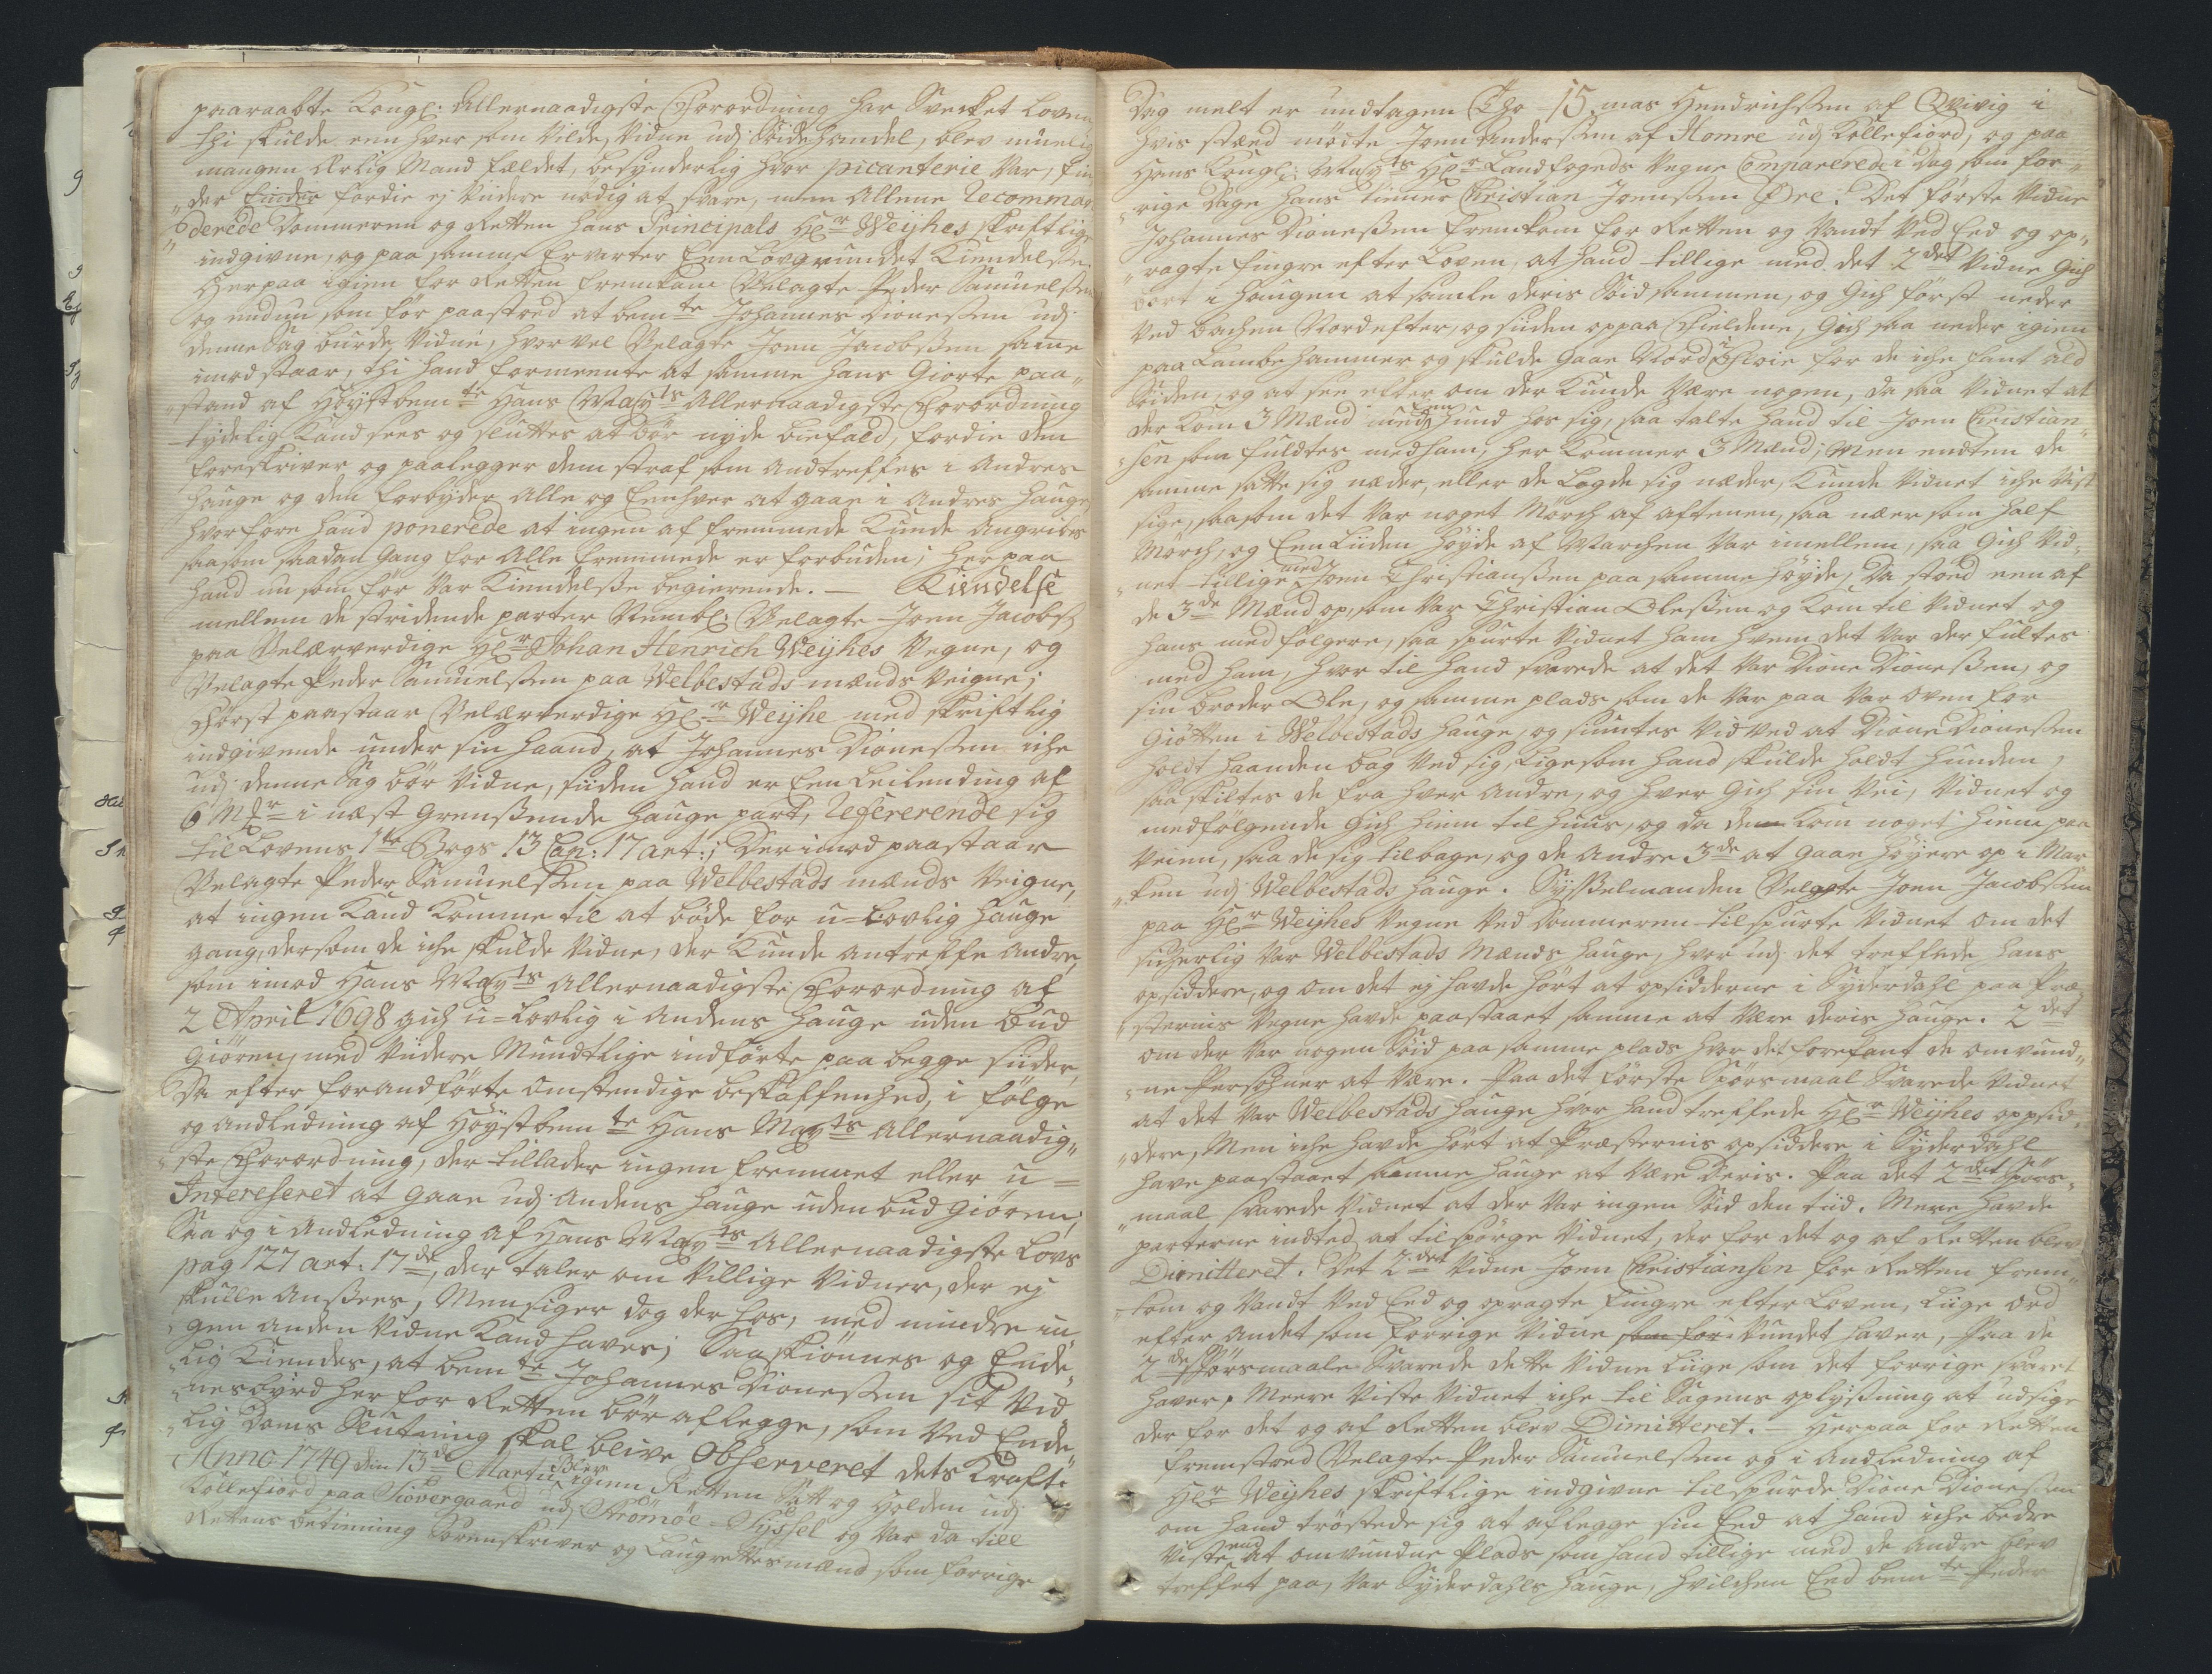 paaraabte Kongl: Allernaadigste Forordning har Svecket Loven
thi skulde een hver som Vilde, Vidne udj Söidehandel, blev mueligt
mangen Ærlig Mand fældet, besynderlig hvor picanterie Var, fin¬
„der finder fordie ej Viidere nödig at svare, men Allene recomman„
„derede Dommeren og Retten hans Principals Hr: Weijhes skriftlige
indgivne, og paa samme Ervarter Een Lovgrundet Kiendelse.
Herpaa igien for Retten fremkom Velagte Peder Samuelsen
og endnu som för paastoed at bemte Johannes Dionesen udj
denne Sag burde Vidne, hvorvel Velagte Joen Jacobsen same
imod staar, thi hand formeente at samme hans Giorte paa„
„stand af Höystbemte Hans Mayts Allernaadigste Forordning
tydelig Kand sees og sluttes at bör nyde biefald, fordie den
foreskriver og paalegger dem straf som Andtreffes i Andres
hauge og den forbyder Alle og Eenhver at gaae i Andres hauge,
hvorfore hand ponerede at ingen af fremmede Kunde Angribes
saasom saadan gang for Alle fremmede er forbuden; herpaa
hand nu som för Var Kiendelse begierende. — Kiendelse
mellem de stridende parter Nembl: Velagte Joen Jacobs:
paa Velærverdige Hr: Johan Henrich Weijhes Vegne, og
Velagte Peder Samuelsen paa Welbestads mænds Veigne;
Först paastaar Velærverdige Hr: Weijhe med skriftlig
indgivende under sin haand, at Johannes Dionesen iche
udj denne Sag bör Vidne, siiden hand er Een Leilending af
6 Mr: i næst grenssende hauge part, refererende sig
til Lovens 1te Bogs 13 Cap: 17 art:; Derimod paastaar
Velagte Peder Samuelsen paa Welbestads mænds Veigne,
at ingen Kand Komme til at böde for u=lovlig hauge
gang, dersom de iche skulde Vidne, der Kunde antreffe andre,
som imod Hans Mayts Allernaadigste Forordning af
2 April 1698 gich u=lovlig i Andens hauge uden bud
Giören, med Viidere Mundtlige indförte paa begge siider,
Da efter forandförte omstendige beskaffenhed, i fölge
og andledning af Höystbemte Hans Mayts Allernaadig„
„ste Forordning, der tillader ingen fremmet eller u=
Intereseret at gaae udj Andens hauge uden bud giören;
Saa og i Andledning af Hans Mayts Allernaadigste Lovs
pag 127 art: 17de, der taler om Villige Vidner, der ej
skulle Ansees, Mens siger dog der hos, med mindre in„
„gen anden Vidne Kand haves; Saa skiönnes og Ende„
„lig Kiendes, at bemte Johannes Dionesen sit Vid„
„nesbyrd her for Retten bör aflegge, som Ved Ende„
„lig Doms Slutning skal blive Observeret dets Kraft.
Anno 1749 den 13de Martii blev igien Retten Sat og Holden udj
Kollefiord paa Siovergaard udj Strömöe=Syssel og Var da till
Rettens betienning Sorenskriver og Laugrettesmænd som forrige
Dag melt er undtagen Tho 15 mas Hendrichsen af Qvivig i
hvis stæd mödte Joen Andersen af Homre udj Kollefiord, og paa
Hans Kongl: Mayts Hr: Landfogeds Vegne Comparerede i Dag som for„
„rige Dage hans tienner Christian Joensen Øre. Det förste Vidne
Johannes Dionesen fremkom for Retten og Vandt Ved Eed og op„
„ragte fingre efter Loven, at hand tillige med det 2det Vidne Gich
bort i haugen at samle deris Söid sammen, og Gich först neder
Ved bachen Nordefter, og siiden oppaa Fieldene, Gich saa neder igien
paa Lambehammer og skulde gaae Nord for de iche fant ald
Söiden, og at see efter om der Kunde Være nogen, da saa Vidnet at
der Kom 3 Mænd med een hund hos sig, saa talte hand til Joen Christian„
„sen som fuldtes med ham, her Kommer 3 Mænd; Men endten de
samme satte sig neder, eller de Lagde sig neder, Kunde Vidnet iche Vist
sige, saasom det Var noget Mörch af aftenen, saa nær som half
Mörch, og Een Liiden höyde af Marchen Var imellem, saa Gich Vid„
„net tillige med Joen Christiansen paa samme höyde, Da stoed een af
de 3de Mænd op, som Var Christian Olesen og Kom til Vidnet og
hans medfölgere, saa spurte Vidnet ham hvem det Var der fultes
med ham, hvor til hand svarede at det Var Dione Dionesen, og
sin broder Ole, og samme plads som de Var paa Var oven for
Giötten i Welbestads hauge, og siuntes Vid Ved at Dione Dionesen
holdt haanden bag Ved sig, lige som hand skulde holdt hunden,
saa skiltes de fra hver Andre, og hver Gich sin Vei, Vidnet og
medfölgende Gich hiem til huus, og da de kom noget hiem paa
Veien, saa de sig tilbage, og de Andre 3de at gaae höyere op i Mar„
„ken udj Welbestads hauge. Syselmanden Velagte Joen Jacobsen
paa Hr: Weijhes Vegne Ved Dommeren tilspurte Vidnet om det
sicherlig Var Welbestads Mænds hauge, hvor udj det treffede hans
opsiddere, og om det ej havde hört at opsidderne i Syderdahl paa Præ„
„sternes Vegne havde paastaaet samme at Være deris hauge. 2det
om der Var nogen Söid paa samme plads hvor det forefant de omvund„
„ne Persohner at Være. Paa det förste Spörsmaal Svarede Vidnet
at det Var Welbestads hauge hvor hand treffede Hr: Weijhes oppsid„
„dere, Men iche havde hört at Præsternis opsiddere i Syderdahl
have paastaaet samme hauge at Være deris. Paa det 2det Spörs„
„maal svarede Vidnet at der Var ingen Söid den tiid. Mere havde
parterne indted at tilspörge Vidnet, der for det og af Retten blev
Dimitteret. Det 2det Vidne Joen Christiansen for Retten frem„
„kom og Vandt Ved Eed og opragte fingre efter Loven, Liige ord
efter andet som forrige Vidne som för Vundet haver, Paa de
2de Spörsmaale Svarede dette Vidne Liige som det forrige svaret
haver, Meere Viste Vidnet iche til Sagens oplyssning at udsige
der for det og af Retten blev Dimitteret. — Herpaa for Retten
fremstoed Velagte Peder Samuelsen og i Andledning af
Hr: Weijhes skriftlige indgivne tilspurde Dione Dionesen
om hand tröstede sig at aflegge sin Eed at hand iche bedre
Viste end at omvundne Plads som hand tillige med de andre blev
treffet paa, Var Syderdahls hauge, hvilchen Eed bemte Peder